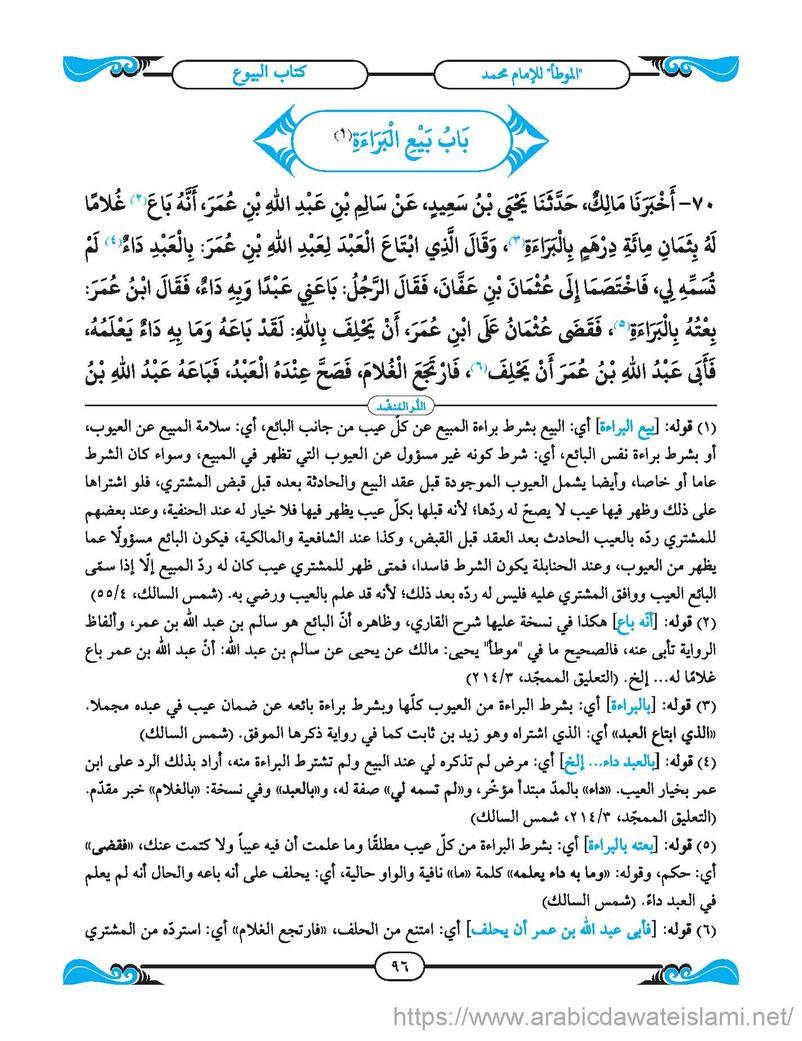 "الموطأ" للإمام محمد
كتاب البيوع
بَابُ بَيْعِ الْبَرَاءَةِ(١)
٧٠- أَخْبَرَنَا مَالِكٌ، حَدَّثَنَا يَحْيَى بْنُ سَعِيدٍ، عَنْ سَالِمِ بْنِ عَبْدِ اللهِ بْنِ عُمَرَ، أَنَّهُ بَاعَ(٢) غُلَامًا
لَهُ بِثَمَانِ مِائَةِ دِرْهَمٍ بِالْبَرَاءَةِ(٣)، وَقَالَ الَّذِي ابْتَاعَ الْعَبْدَ لِعَبْدِ اللهِ بْنِ عُمَرَ: بِالْعَبْدِ دَاءٌ(٤) لَمْ
تُسَمِّهِ لِي، فَاخْتَصَمَا إِلَى عُثْمَانَ بْنِ عَفَّانَ، فَقَالَ الرَّجُلُ: بَاعَنِي عَبْدًا وَبِهِ دَاءٌ، فَقَالَ ابْنُ عُمَرَ:
بِعْتُهُ بِالْبَرَاءَةِ(٥)، فَقَضَى عُثْمَانُ عَلَى ابْنِ عُمَرَ، أَنْ يَحْلِفَ بِاللهِ: لَقَدْ بَاعَهُ وَمَا بِهِ دَاءٌ يَعْلَمُهُ،
فَأَبَى عَبْدُ اللهِ بْنُ عُمَرَ أَنْ يَحْلِفَ(٦)، فَارْتَجَعَ الْغُلَامَ، فَصَحَّ عِنْدَهُ الْعَبْدُ، فَبَاعَهُ عَبْدُ اللهِ بْنُ
الدُّر المُنضَّد
(١) قوله: [بيع البراءة] أي: البيع بشرط براءة المبيع عن كلّ عيب من جانب البائع، أي: سلامة المبيع عن العيوب،
أو بشرط براءة نفس البائع، أي: شرط كونه غير مسؤول عن العيوب التي تظهر في المبيع، وسواء كان الشرط
عاما أو خاصا، وأيضا يشمل العيوب الموجودة قبل عقد البيع والحادثة بعده قبل قبض المشتري، فلو اشتراها
على ذلك وظهر فيها عيب لا يصحّ له ردّها؛ لأنه قبلها بكلّ عيب يظهر فيها فلا خيار له عند الحنفية، وعند بعضهم
للمشتري ردّه بالعيب الحادث بعد العقد قبل القبض، وكذا عند الشافعية والمالكية، فيكون البائع مسؤولًا عما
يظهر من العيوب، وعند الحنابلة يكون الشرط فاسدا، فمتى ظهر للمشتري عيب كان له ردّ المبيع إلّا إذا سمّى
البائع العيب ووافق المشتري عليه فليس له ردّه بعد ذلك؛ لأنه قد علم بالعيب ورضي به. (شمس السالك، ٥٥/٤)
(٢) قوله: [أنّه باع] هكذا في نسخة عليها شرح القاري، وظاهره أنّ البائع هو سالم بن عبد الله بن عمر، وألفاظ
الرواية تأبى عنه، فالصحيح ما في "موطأ" يحيى: مالك عن يحيى عن سالم بن عبد الله: أنّ عبد الله بن عمر باع
غلامًا له... إلخ. (التعليق الممجّد، ٢١٤/٣)
(٣) قوله: [بالبراءة] أي: بشرط البراءة من العيوب كلّها وبشرط براءة بائعه عن ضمان عيب في عبده مجملا.
«الذي ابتاع العبد» أي: الذي اشتراه وهو زيد بن ثابت كما في رواية ذكرها الموفق. (شمس السالك)
(٤) قوله: [بالعبد داء... إلخ] أي: مرض لم تذكره لي عند البيع ولم تشترط البراءة منه، أراد بذلك الرد على ابن
عمر بخيار العيب. «داء» بالمدّ مبتدأ مؤخّر، و«لم تسمه لي» صفة له، و«بالعبد» وفي نسخة: «بالغلام» خبر مقدّم.
(التعليق الممجّد، ٢١٤/٣، شمس السالك)
(٥) قوله: [بعته بالبراءة] أي: بشرط البراءة من كلّ عيب مطلقًا وما علمت أن فيه عيباً ولا كتمت عنك، «فقضى»
أي: حكم، وقوله: «وما به داء يعلمه» كلمة «ما» نافية والواو حالية، أي: يحلف على أنه باعه والحال أنه لم يعلم
في العبد داءً. (شمس السالك)
(٦) قوله: [فأبى عبد الله بن عمر أن يحلف] أي: امتنع من الحلف، «فارتجع الغلام» أي: استردّه من المشتري
٩٦
https://www.arabicdawateislami.net/